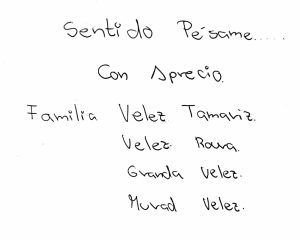 Sentido Pésame.....
Con Aprecio.
Familia Velez Tamariz.
Velez Roura.
Granda Velez.
Murad Velez.